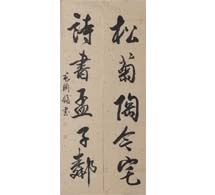 松菊陶令宅
詩書孟子鄰